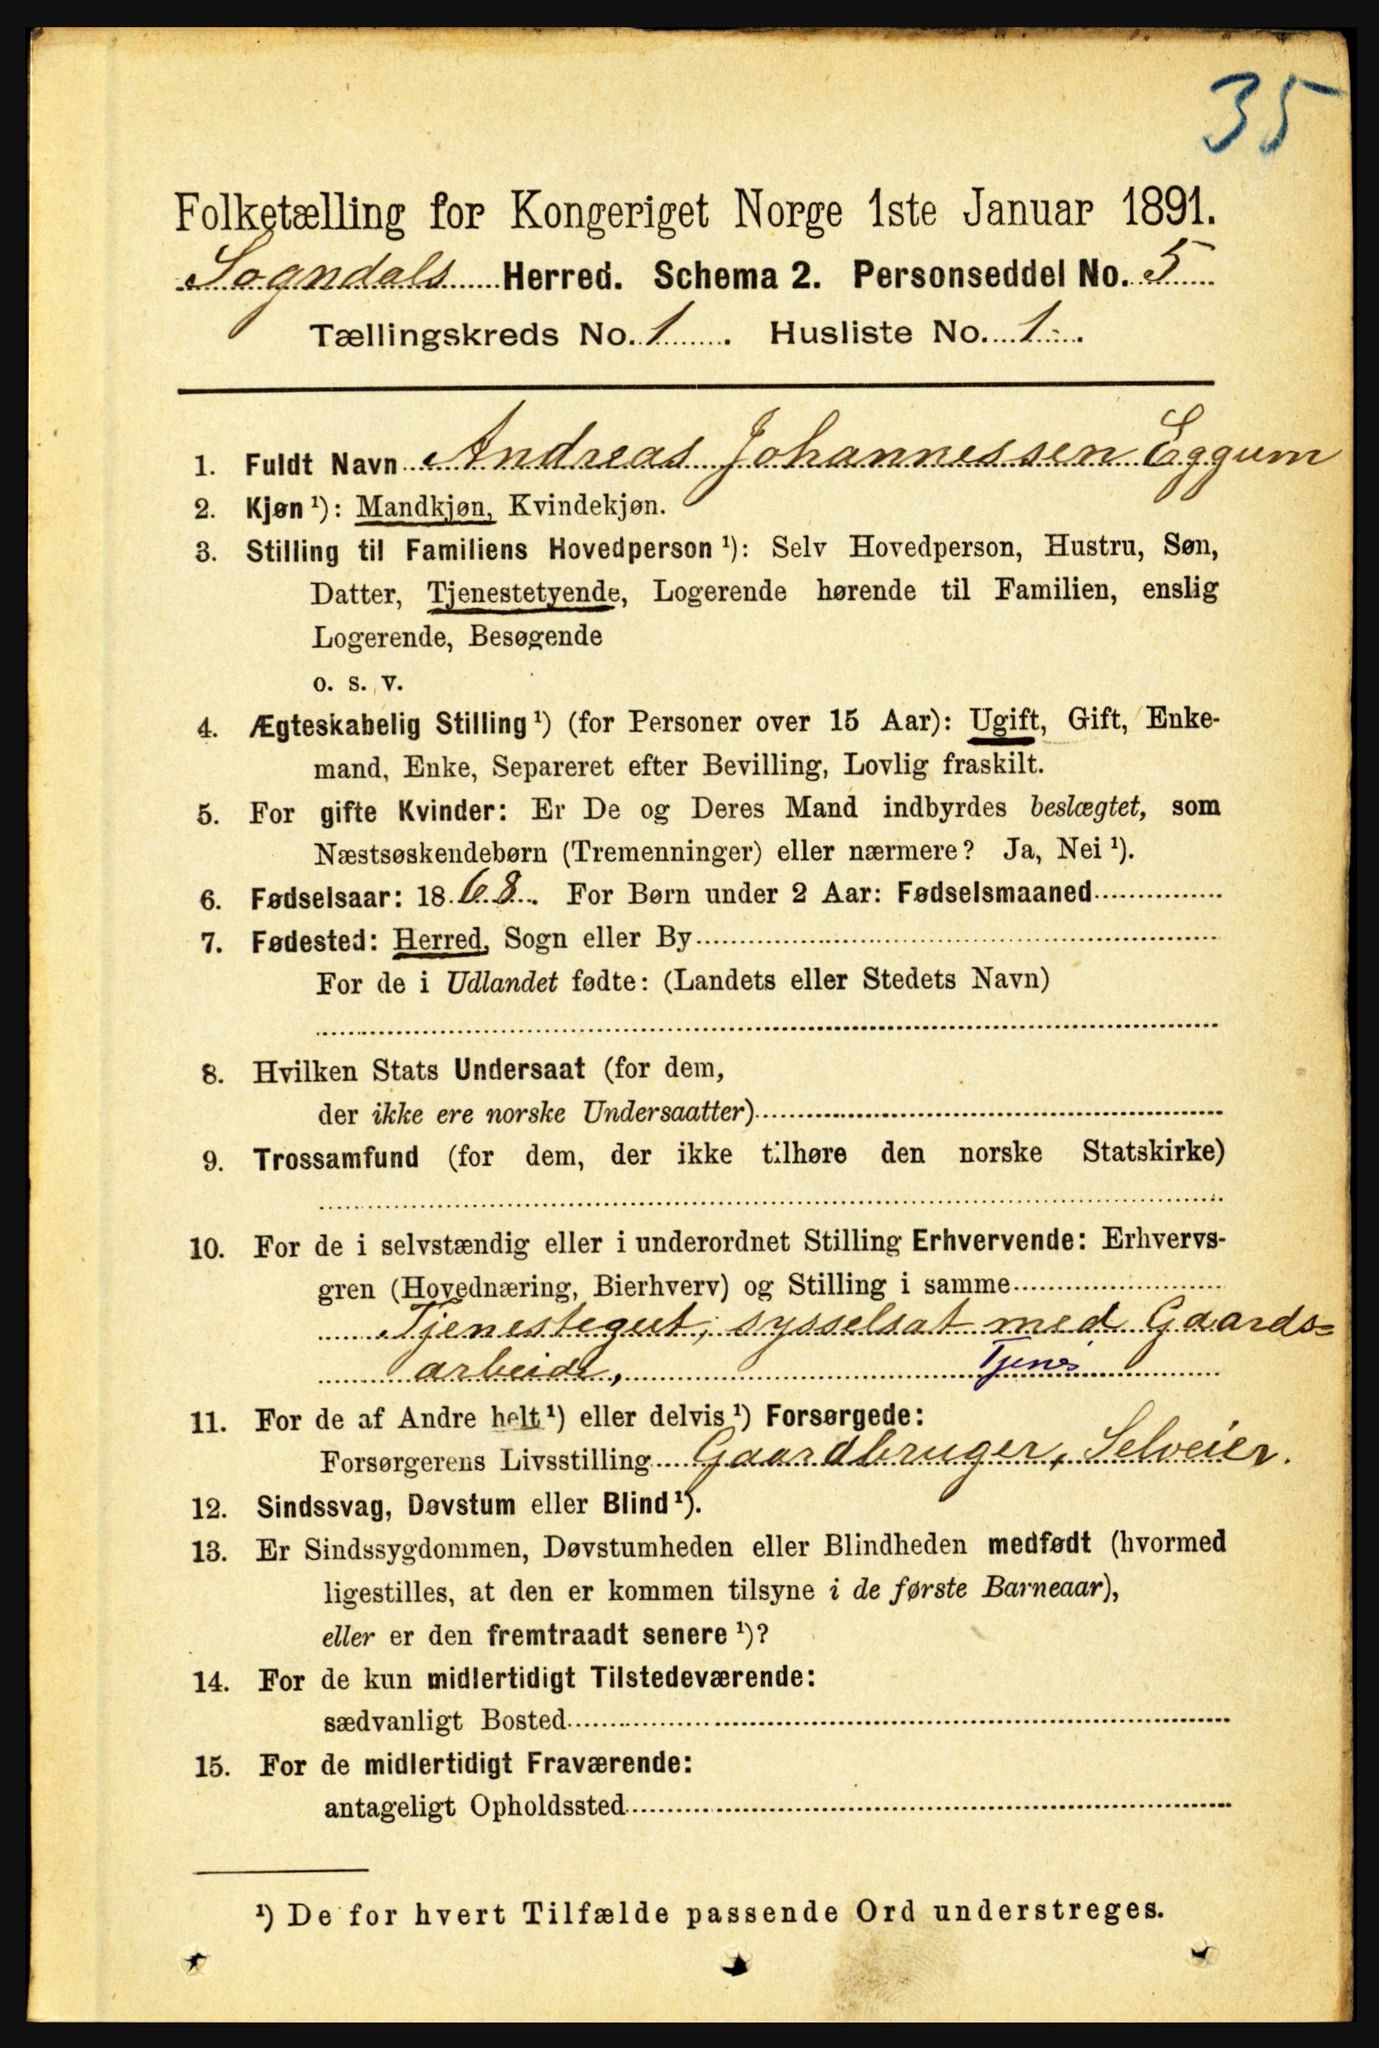 35
Folketælling for Kongeriget Norge 1ste Januar 1891.
Sogndals Herred. Schema 2. Personseddel No. 5
Tællingskreds No. 1. Husliste No. 1.
1. Fuldt Navn Andreas Johannessen Eggum
2. Kjøn ¹): Mandkjøn, Kvindekjøn.
3. Stilling til Familiens Hovedperson ¹): Selv Hovedperson, Hustru, Søn,
Datter, Tjenestetyende, Logerende hørende til Familien, enslig
Logerende, Besøgende
o. s. v.
4. Ægteskabelig Stilling ¹) (for Personer over 15 Aar): Ugift, Gift, Enke-
mand, Enke, Separeret efter Bevilling, Lovlig fraskilt.
5. For gifte Kvinder: Er De og Deres Mand indbyrdes beslægtet, som
Næstsøskendebørn (Tremenninger) eller nærmere? Ja, Nei ¹).
6. Fødselsaar: 1868. For Børn under 2 Aar: Fødselsmaaned
7. Fødested: Herred, Sogn eller By
For de i Udlandet fødte: (Landets eller Stedets Navn)
8. Hvilken Stats Undersaat (for dem,
der ikke ere norske Undersaatter)
9. Trossamfund (for dem, der ikke tilhøre den norske Statskirke)
10. For de i selvstændig eller i underordnet Stilling Erhvervende: Erhvervs-
gren (Hovednæring, Bierhverv) og Stilling i samme
Tjenestegut, sysselsat med Gaards=
arbeide, Tjenes
11. For de af Andre helt ¹) eller delvis ¹) Forsørgede:
Forsørgerens Livsstilling Gaardbruger, Selveier.
12. Sindssvag, Døvstum eller Blind ¹).
13. Er Sindssygdommen, Døvstumheden eller Blindheden medfødt (hvormed
ligestilles, at den er kommen tilsyne i de første Barneaar),
eller er den fremtraadt senere ¹)?
14. For de kun midlertidigt Tilstedeværende:
sædvanligt Bosted
15. For de midlertidigt Fraværende:
antageligt Opholdssted
¹) De for hvert Tilfælde passende Ord understreges.